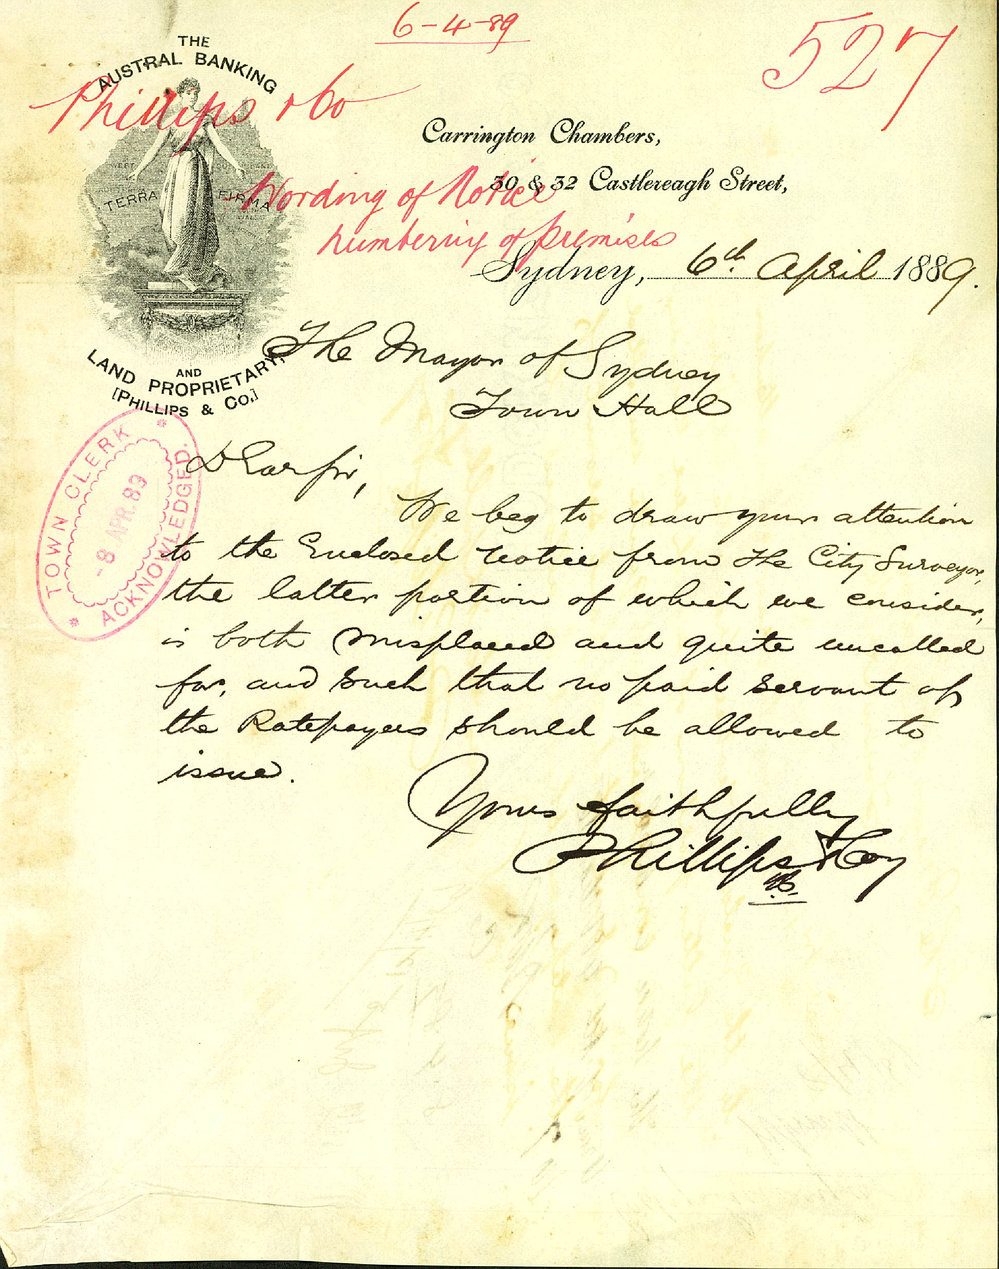 6-4-89
527
THE
AUSTRAL BANKING
Phillips & Co
Carrington Chambers,
30 & 32 Castlereagh Street,
TERRA FIRMA
Wording of Notice
numbering of premises
Sydney, 6th April 1889.
AND
LAND PROPRIETARY.
[PHILLIPS & CO.]
The Mayor of Sydney
Town Hall
TOWN CLERK
8 APR. 89
ACKNOWLEDGED.
Dear Sir,
We beg to draw your attention
to the Enclosed notice from the City Surveyor,
the latter portion of which we consider,
is both misplaced and quite uncalled
for, and such that no paid servant of
the Ratepayers should be allowed to
issue.
Yours faithfully
Phillips & Coy